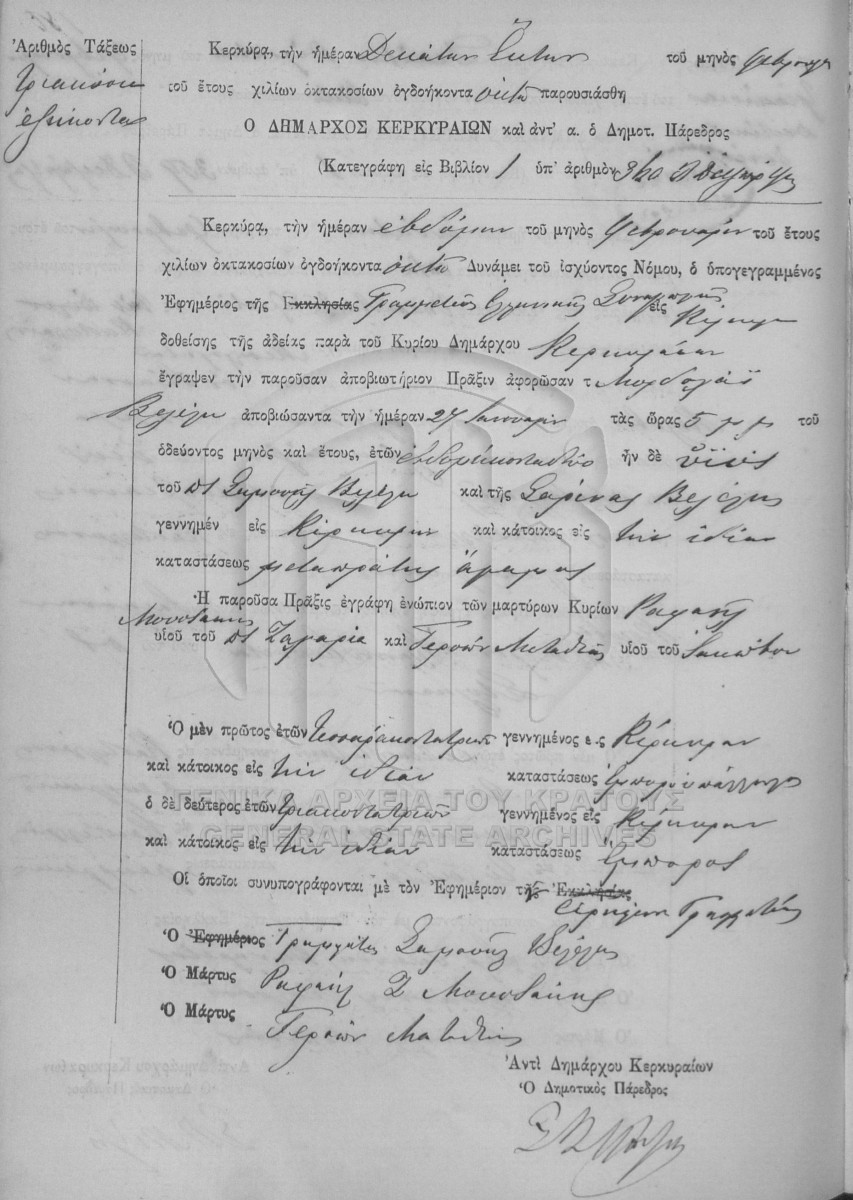 Ἀριθμὸς Τάξεως
τριακόσια
ἑξήκοντα
Κερκύρα, τὴν ἡμέραν Δεκάτην Ἕκτην τοῦ μηνὸς Φεβρουαρ
τοῦ ἔτους χιλίων ὀκτακοσίων ὀγδοήκοντα ὀκτὼ παρουσιάσθη
Ο ΔΗΜΑΡΧΟΣ ΚΕΡΚΥΡΑΙΩΝ καὶ ἀντ' α. ὁ Δημοτ. Πάρεδρος
(Κατεγράφη εἰς Βιβλίον 1 ὑπ' ἀριθμὸν 360
Κερκύρᾳ, τὴν ἡμέραν ἑβδόμην τοῦ μηνὸς Φεβρουαρίου τοῦ ἔτους
χιλίων ὀκτακοσίων ὀγδοήκοντα ὀκτὼ Δυνάμει τοῦ ἰσχύοντος Νόμου, ὁ ὑπογεγραμμένος
Ἐφημέριος τῆς Εκκλησίας Γραμματεὺς Ἑλληνικῆς Συναγωγῆς εἰς Κέρκυραν
δοθείσης τῆς ἀδείας παρὰ τοῦ Κυρίου Δημάρχου Κερκυραίων
ἔγραψεν τὴν παροῦσαν ἀποβιωτήριον Πρᾶξιν ἀφορῶσαν τ Μορδοχάϊ
Βελέλη ἀποβιώσαντα τὴν ἡμέραν 27 Ιανουαρίου τὰς ὥρας 5 μ μ τοῦ
ὁδεύοντος μηνὸς καὶ ἔτους, ἐτῶν ἑβδομηκονταδύο ἦν δὲ υἱὸς
τοῦ Σαμουὴλ Βελέλη καὶ τῆς Σαρίνας Βελέλη
γεννημέν εἰς Κέρκυραν καὶ κάτοικος εἰς τὴν ἰδίαν
καταστάσεως μεταπράτης ἄγαμος
Ἡ παροῦσα Πρᾶξις ἐγράφη ἐνώπιον τῶν μαρτύρων Κυρίων Ραφαὴλ
Μουστάκης υἱοῦ τοῦ Ζαχαρία καὶ Γερσὼν Ματαθίας υἱοῦ τοῦ Ἰακώβου
Ὁ μὲν πρῶτος ἐτῶν τεσσαρακοντατριῶν γεννημένος εἰς Κέρκυραν
καὶ κάτοικος εἰς τὴν ἰδίαν καταστάσεως ἐμποροϋπάλληλος
ὁ δὲ δεύτερος ἐτῶν τριακοντατριῶν γεννημένος εἰς Κέρκυραν
καὶ κάτοικος εἰς τὴν ἰδίαν καταστάσεως ἔμπορος
Οἱ ὁποῖοι συνυπογράφονται μὲ τὸν Ἐφημέριον τῆς Ἐκκλησίας
εἰρημένον Γραμματέα
Ὁ Ἐφημέριος Γραμματεὺς Σαμουὴλ Βελέλης
Ὁ Μάρτυς Ραφαὴλ Ζ Μουστάκης
Ὁ Μάρτυς Γερσὼν Ματαθίας
Ἀντὶ Δημάρχου Κερκυραίων
Ὁ Δημοτικὸς Πάρεδρος
ΓΕΝΙΚΑ ΑΡΧΕΙΑ ΤΟΥ ΚΡΑΤΟΥΣ
GENERAL STATE ARCHIVES